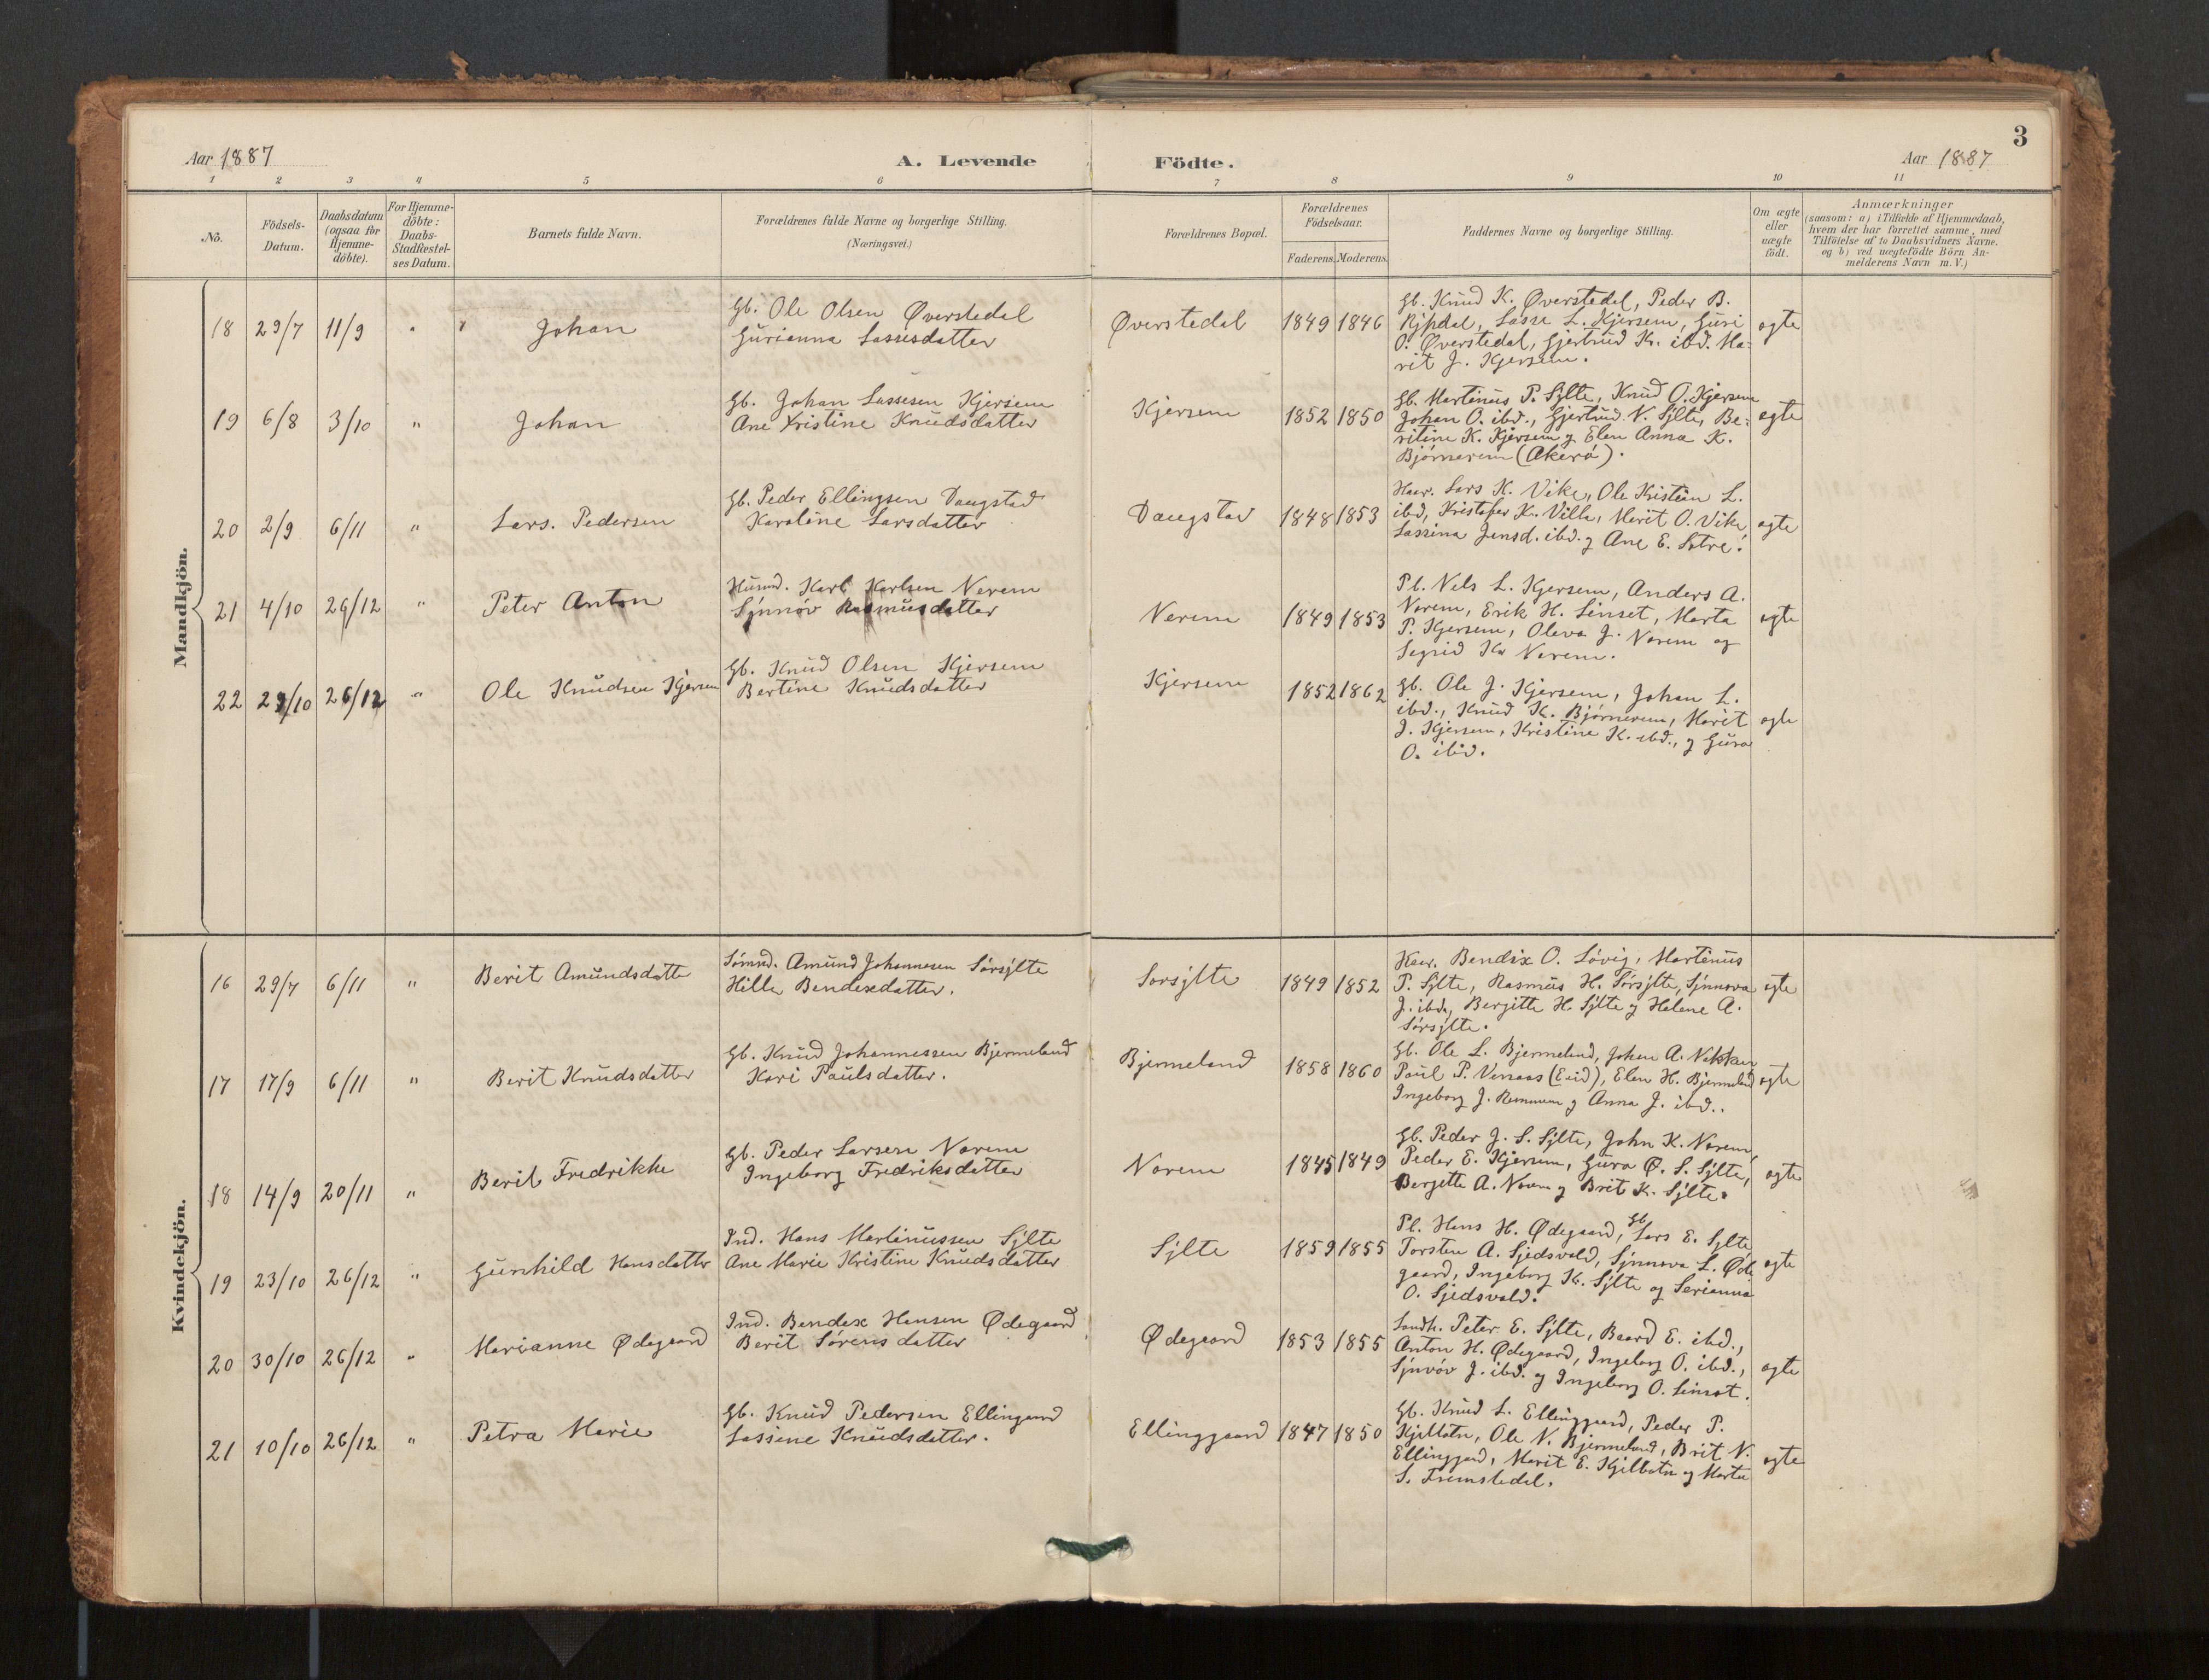 3
Aar 1887
A. Levende
Födte.
Aar 1887
1 2 3 4 5 6 7 8 9 10 11
No.
Födsels-
Datum.
Daabsdatum
(ogsaa for
Hjemme-
döbte).
For Hjemme-
döbte:
Daabs-
Stadfæstel-
ses Datum.
Barnets fulde Navn.
Forældrenes fulde Navne og borgerlige Stilling.
(Næringsvei.)
Forældrenes Bopæl.
Forældrenes
Födselsaar.
Faderens. Moderens.
Faddernes Navne og borgerlige Stilling.
Om ægte
eller
uægte
födt.
Anmærkninger
(saasom: a) i Tilfælde af Hjemmedaab,
hvem der har forrettet samme, med
Tilföielse af to Daabsvidners Navne.
og b) ved uægtefödte Börn An-
melderens Navn m. V.)
Mandkjön.
18 29/7 11/9 " Johan
Gb. Ole Olsen Øverstedal
Gurianna Lassesdatter
Øverstedal 1849 1846
Gb. Knud K. Øverstedal, Peder B.
Rypdal, Lasse L. Kjersem, Guri
O. Øverstedal, Gjertrud K. ibd. Ma-
rit J. Kjersem.
egte
19 6/8 3/10 " Johan
Gb. Johan Lassesen Kjersem
Ane Kristine Knudsdatter
Kjersem 1852 1850
Gb. Martinus P. Sylte, Knud O. Kjersem
Johan O. ibd., Gjertrud N. Sylte, Be-
ritine K. Kjersem og Elen Anna K.
Bjørnerem (Akerø).
egte
20 2/9 6/11 " Lars. Pedersen
Gb. Peder Ellingsen Daugstad
Karoline Larsdatter
Daugstad 1848 1853
Kaar. Lars K. Vike, Ole Kristian L.
ibd, Kristofer K. Villa, Marit O. Vike
Lassina Jensd. ibd. og Ane E. Sætre.
egte
21 4/10 26/12 " Peter Anton
Husmd. Karl Karlsen Nerem
Synnøv Rasmusdatter
Nerem 1849 1853
Pl. Nels L. Kjersem, Anders A.
Norem, Erik H. Linset, Marta
P. Kjersem, Oleva J. Norem og
Segrid K. Nerem.
egte
22 29/10 26/12 " Ole Knudsen Kjersem
Gb. Knud Olsen Kjersem
Bertine Knudsdatter
Kjersem 1852 1862
Gb. Ole J. Kjersem, Johan L.
ibd., Knud K. Bjørnerem, Marit
J. Kjersem, Kristine K. ibd., og Gura
O. ibid.
egte
Kvindekjön.
16 29/7 6/11 " Berit Amundsdatte
Amund Johannesen Sørsylte
Hille Bendexdatter.
Sørsylte 1849 1852
Kaar. Bendix O. Løvig, Martinus
P. Sylte, Rasmus H. Sørsylte, Synnova
J. ibd., Bergitte H. Sylte og Helene A.
Sørsylte.
egte
17 17/9 6/11 " Berit Knudsdatter
Gb. Knud Johannessen Bjermeland
Kari Paulsdatter.
Bjermeland 1858 1860
Gb. Ole L. Bjermeland, Johan A. Nakken
Paul P. Venaas (Eid), Elen H. Bjermeland
Ingeborg J. Remmem og Anna J. ibd..
egte
18 14/9 20/11 " Berit Fredrikke
Gb. Peder Larsen Norem
Ingeborg Fredriksdatter
Norem 1845 1849
Gb. Peder J. S. Sylte, John K. Norem,
Peder E. Kjersem, Gura Ø. S. Sylte,
Bergette A. Norem og Brit K. Sylte.
egte
19 23/10 26/12 " Gunhild Hansdatter
Ind. Hans Martinussen Sylte
Ane Marie Kristine Knudsdatter
Sylte 1859 1855
Pl. Hans H. Ødegaard, Gb. Lars E. Sylte,
Torsten A. Sjedsvold, Synnova L. Øde
gaard, Ingeborg K. Sylte og Serianna
O. Sjedsvold.
egte
20 30/10 26/12 " Marianne Ødegaard
Ind. Bendex Hansen Ødegaard
Berit Sørensdatter
Ødegaard 1853 1855
Landh. Peter E. Sylte, Baard E. ibd.,
Anton H. Ødegaard, Ingeborg O. ibd.,
Synvøv J. ibd. og Ingeborg O. Linset.
egte
21 10/10 26/12 " Petra Marie
Gb. Knud Pedersen Ellingaard
Lassine Knudsdatter.
Ellinggaard 1847 1850
Gb. Knud L. Ellinggaard, Peder P.
Kjelbotn, Ole N. Bjermeland, Brit N.
Ellinggard, Marit E. Kjelbotn og Marta
S. Fremstedal.
egte